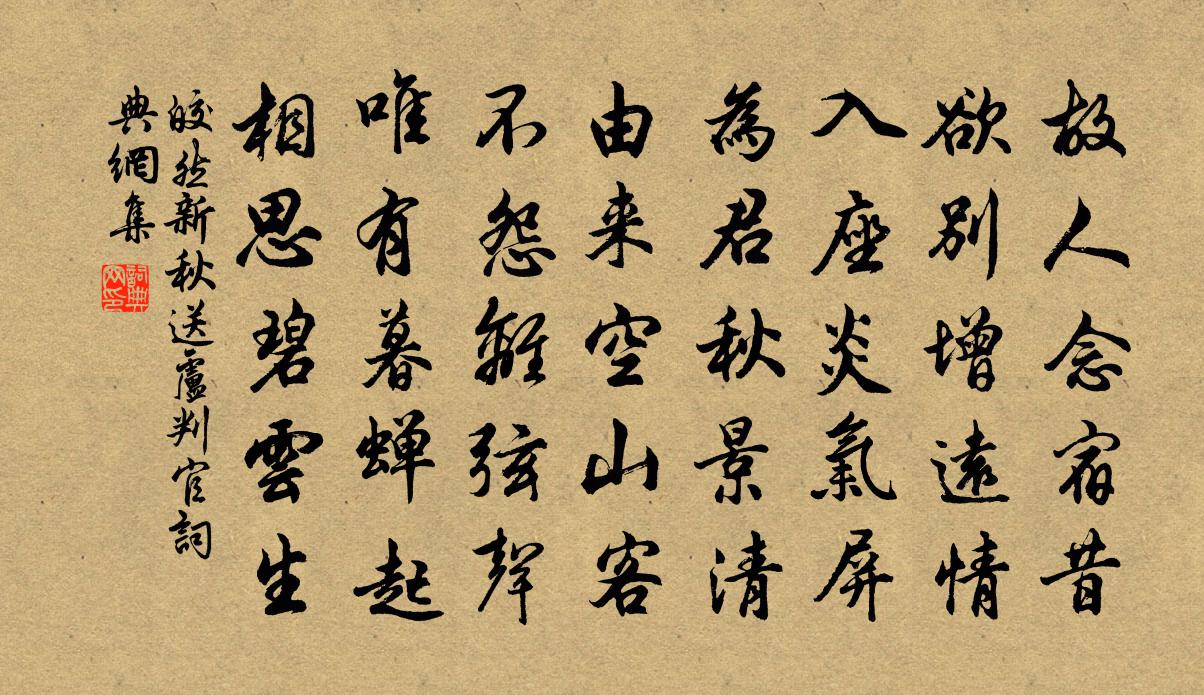 故人念宿昔
欲別增遠情
入座炎氣屏
為君秋景清
由来空山客
不怨離弦聲
唯有暮蝉起
相思碧雲生
皎然新秋送盧判官詞
典網集
詞典
网印